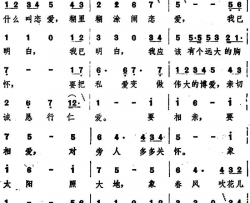 1 2 3 4 5 4 3 2 1 2 3 5 - 5 5 6
什么叫恋爱， 糊里 糊涂 闹恋 爱， 我已
1 1 0 1 2 3 4 4 0 5·5 5 3 2 1
明白， 我已 明白， 我应 该有个远大的胸
7 - · 1 1 6· 6 7· 7 1 2 3 4 5
怀， 要把 私 爱变 做 伟大的博爱，亲切
2 6 7 12· 1 - - i 6 - i
诚恳行仁 爱。 要 相亲， 要
7 5 - 5 6 4· 4 3 4 5 - 3
相爱， 对 旁人 多多关 怀。 象
i 6 - i 7 5 - 5 6 4· 4 3 4
太阳 照 大地， 象 春风 吹花儿